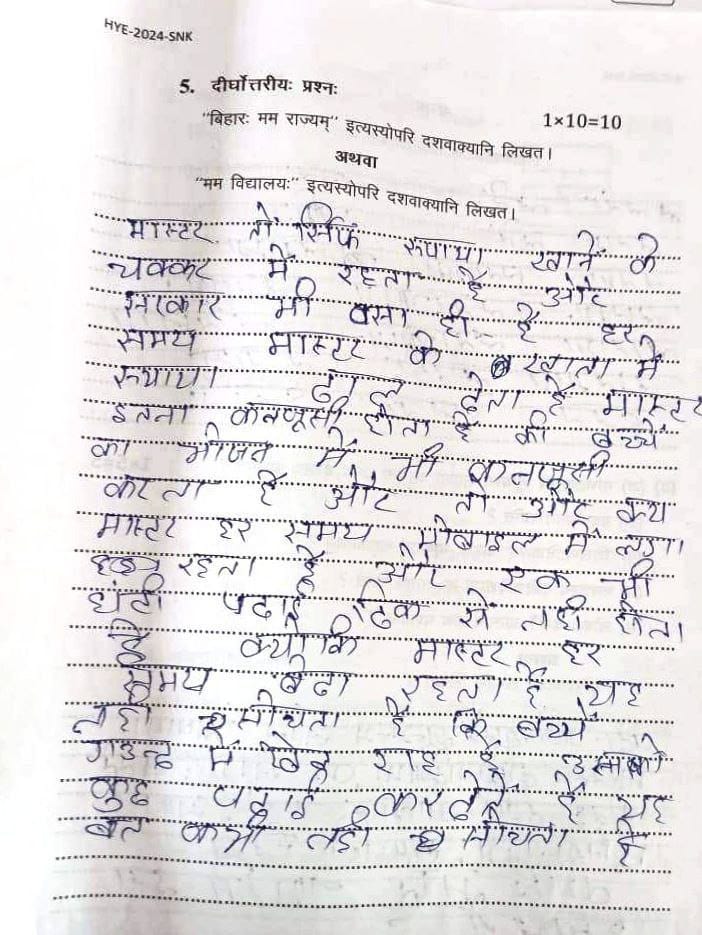 HYE-2024-SNK
5. दीर्घोत्तरीयः प्रश्नः
1×10=10
"बिहारः मम राज्यम्" इत्यस्योपरि दशवाक्यानि लिखत।
अथवा
"मम विद्यालयः" इत्यस्योपरि दशवाक्यानि लिखत।
मास्टर तो सिर्फ रूपाया खाने के
चक्कर में रहता है और
सरकार भी वसा ही है हर
समय मास्टर के खाता में
रूपाया ढाल देता है मास्टर
इतना कनजूसी होता है की बच्चे
का भोजन में भी कनजूसी
करता है और तो और क्य
मास्टर हर समय मोबाइल में लगा
रहता है और एक भी
घंटी पढाई ठिक से नही होता
है क्योकि मास्टर हर
समय बेठा रहता है यह
नही सोचता है कि बच्चे
गउन्ड में खेल राह है उसको
कुछ पढाई करदेते है यह
बत कभी नही सोचता है